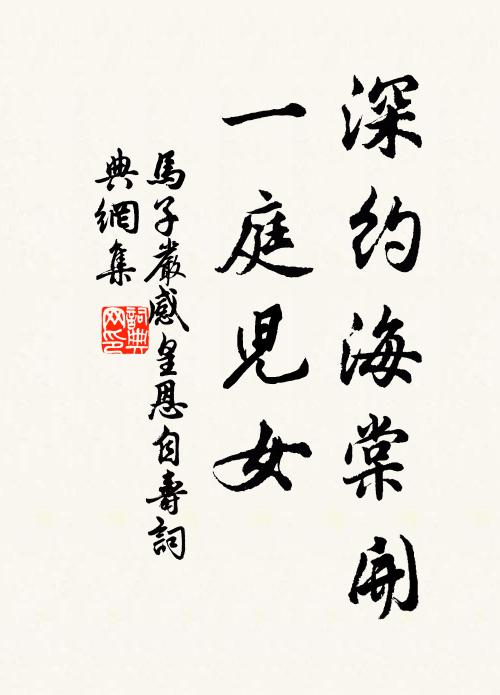 深約海棠開
一庭兒女
馬子嚴感皇恩自壽詞
典網集
詞典
网印